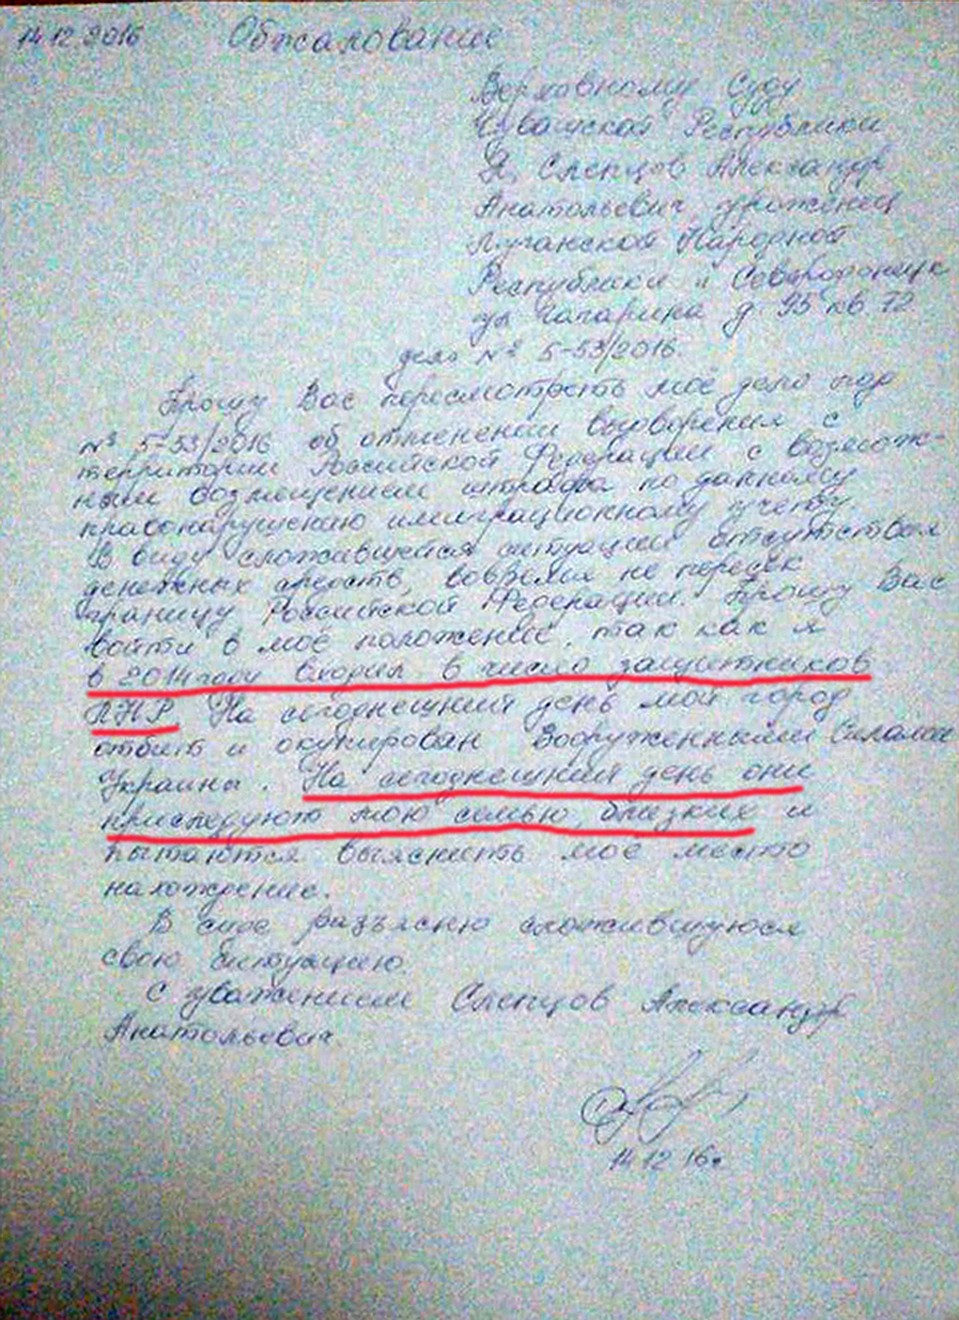 14.12.2016 Обжалование
Верховному Суду
Чувашской Республики
Я, Слепцов Александр
Анатольевич, уроженец
Луганской Народной
Республики г Северодонецк
ул Гагарина д. 95 кв. 72.
дело № 5-53/2016.
Прошу Вас пересмотреть моё дело под
№ 5-53/2016 об отменении выдворения с
территории Российской Федерации с возмож-
ным возмещением штрафа по данному
правонарушению имиграционному учёту.
В виду сложившейся ситуации отсутствия
денежных средств, вовремя не пересек
границу Российской Федерации. Прошу Вас
войти в моё положение, так как я
в 2014 году входил в число защитников
ЛНР. На сегоднешний день мой город
отбит и окупирован Вооруженными Силами
Украины. На сегоднешний день они
приследуют мою семью, близких и
пытаются выяснить моё место
нахождение.
В суде разъясню сложившуюся
свою ситуацию.
С уважением Слепцов Александр
Анатольевич.
14.12.16г.